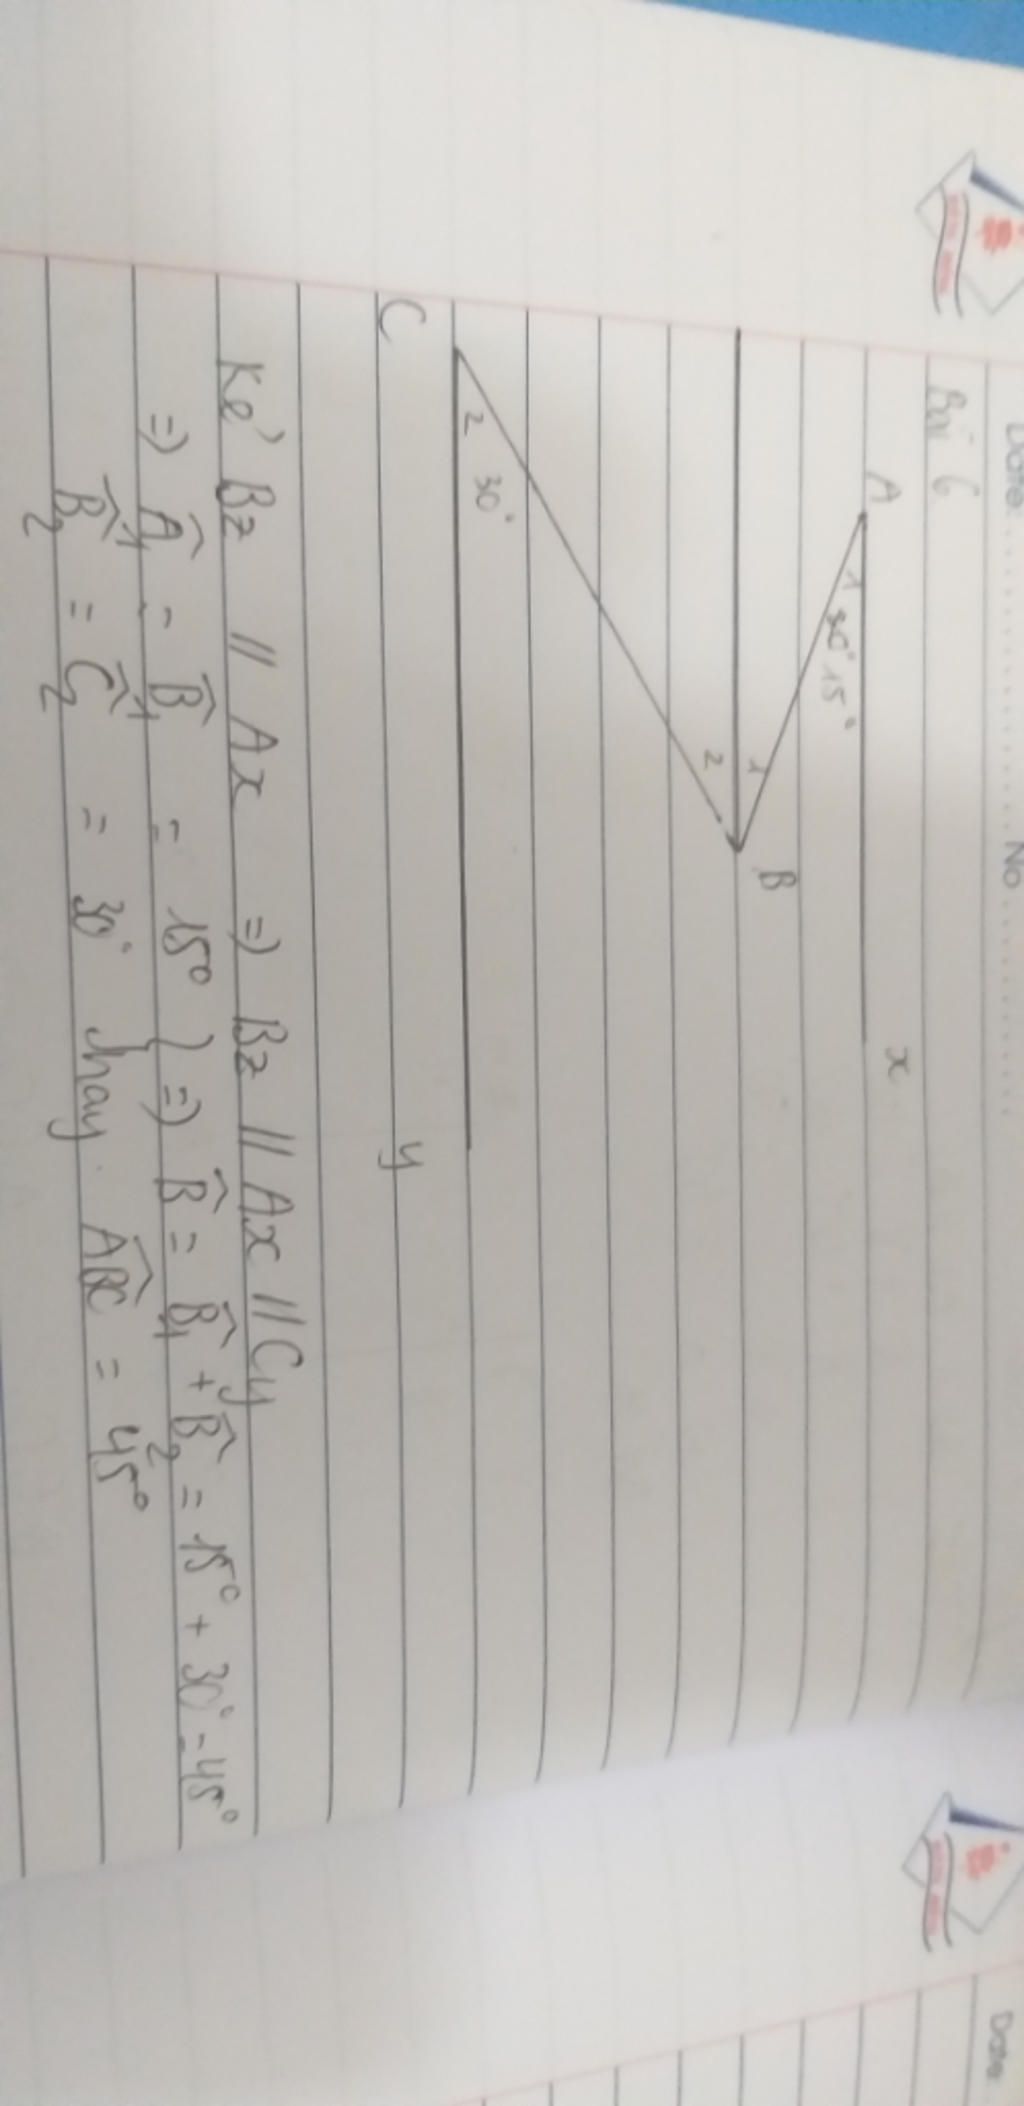 Date: ............ No ............
Bài 6
A
x
1
30° 15°
B
1
2
30°
2
C
y
Kẻ Bz // Ax => Bz // Ax // Cy
=> A1 = B1 = 15° } => B = B1 + B2 = 15° + 30° = 45°
B2 = C2 = 30° hay ABC = 45°
Date: